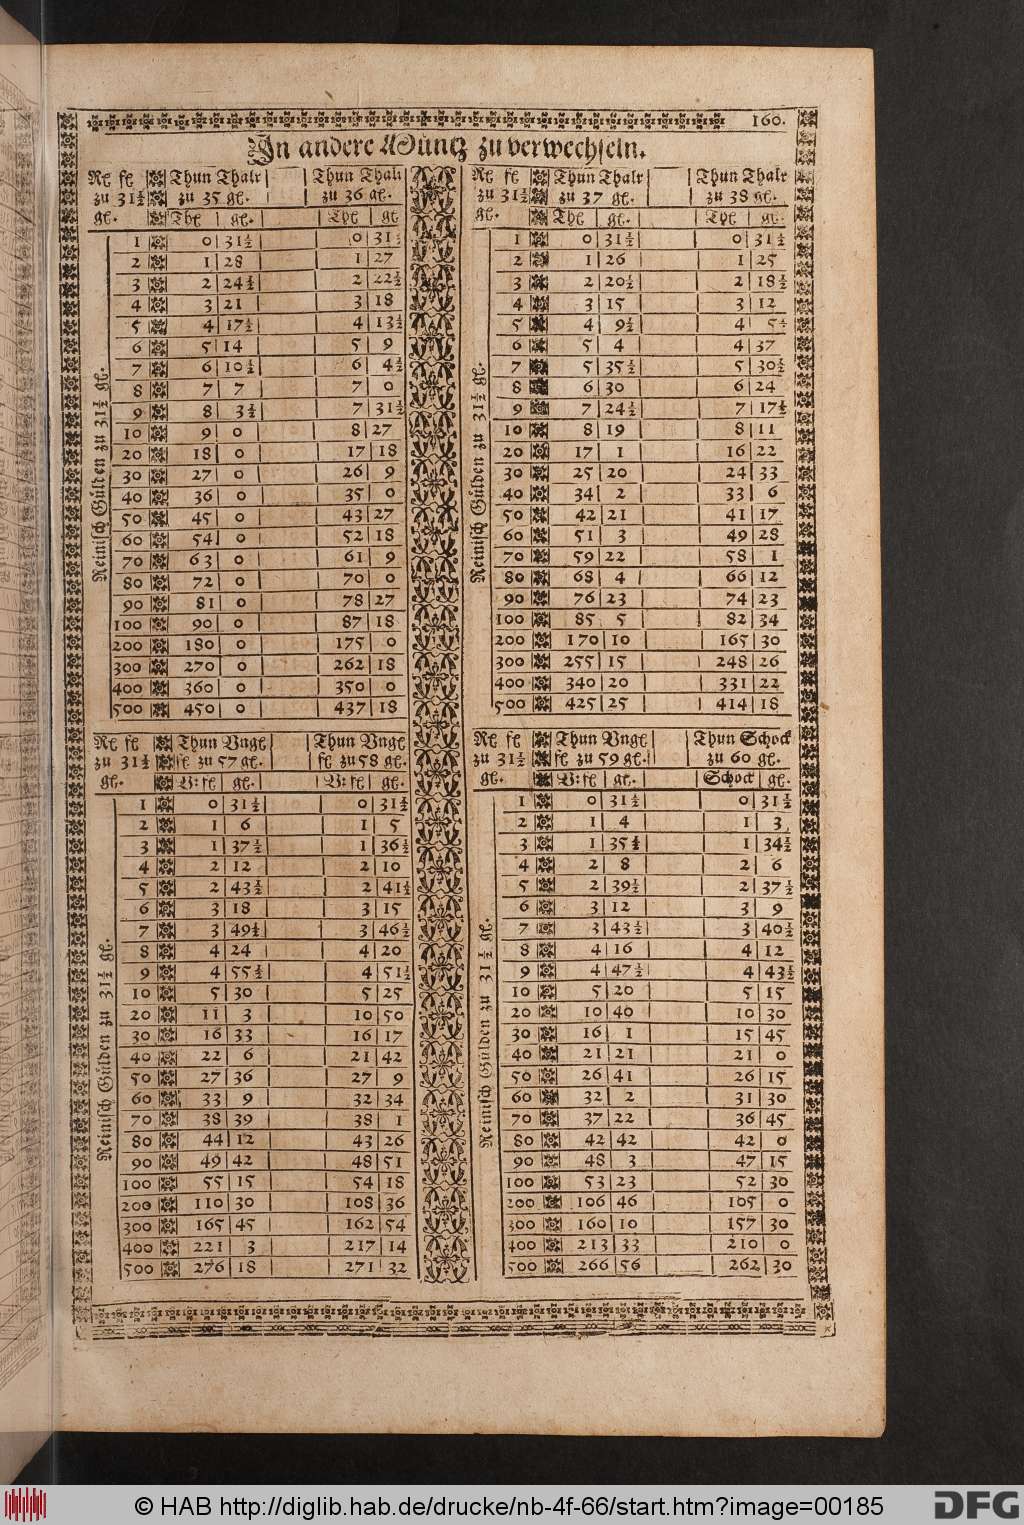 160.
In andere Müntz zu verwechseln.
Rł fł | Thun Thalr | Thun Thalr
zu 31½ | zu 35 gł. | zu 36 gł.
gł. | Thł | gł. | Thł | gł
1 | 0 | 31½ | 0 | 31½
2 | 1 | 28 | 1 | 27
3 | 2 | 24½ | 2 | 22½
4 | 3 | 21 | 3 | 18
5 | 4 | 17½ | 4 | 13½
6 | 5 | 14 | 5 | 9
7 | 6 | 10½ | 6 | 4½
8 | 7 | 7 | 7 | 0
9 | 8 | 3½ | 7 | 31½
10 | 9 | 0 | 8 | 27
20 | 18 | 0 | 17 | 18
30 | 27 | 0 | 26 | 9
40 | 36 | 0 | 35 | 0
50 | 45 | 0 | 43 | 27
60 | 54 | 0 | 52 | 18
70 | 63 | 0 | 61 | 9
80 | 72 | 0 | 70 | 0
90 | 81 | 0 | 78 | 27
100 | 90 | 0 | 87 | 18
200 | 180 | 0 | 175 | 0
300 | 270 | 0 | 262 | 18
400 | 360 | 0 | 350 | 0
500 | 450 | 0 | 437 | 18
Reinisch Gülden zu 31½ gł.
Rł fł | Thun Thalr | Thun Thalr
zu 31½ | zu 37 gł. | zu 38 gł.
gł. | Thł | gł. | Thł | gł.
1 | 0 | 31½ | 0 | 31½
2 | 1 | 26 | 1 | 25
3 | 2 | 20½ | 2 | 18½
4 | 3 | 15 | 3 | 12
5 | 4 | 9½ | 4 | 5½
6 | 5 | 4 | 4 | 37
7 | 5 | 35½ | 5 | 30½
8 | 6 | 30 | 6 | 24
9 | 7 | 24½ | 7 | 17½
10 | 8 | 19 | 8 | 11
20 | 17 | 1 | 16 | 22
30 | 25 | 20 | 24 | 33
40 | 34 | 2 | 33 | 6
50 | 42 | 21 | 41 | 17
60 | 51 | 3 | 49 | 28
70 | 59 | 22 | 58 | 1
80 | 68 | 4 | 66 | 12
90 | 76 | 23 | 74 | 23
100 | 85 | 5 | 82 | 34
200 | 170 | 10 | 165 | 30
300 | 255 | 15 | 248 | 26
400 | 340 | 20 | 331 | 22
500 | 425 | 25 | 414 | 18
Reinisch Gülden zu 31½ gł.
Rł fł | Thun Vngł | Thun Vngł
zu 31½ | fł zu 57 gł. | fł zu 58 gł.
gł. | V: fł | gł. | V: fł | gł.
1 | 0 | 31½ | 0 | 31½
2 | 1 | 6 | 1 | 5
3 | 1 | 37½ | 1 | 36½
4 | 2 | 12 | 2 | 10
5 | 2 | 43½ | 2 | 41½
6 | 3 | 18 | 3 | 15
7 | 3 | 49½ | 3 | 46½
8 | 4 | 24 | 4 | 20
9 | 4 | 55½ | 4 | 51½
10 | 5 | 30 | 5 | 25
20 | 11 | 3 | 10 | 50
30 | 16 | 33 | 16 | 17
40 | 22 | 6 | 21 | 42
50 | 27 | 36 | 27 | 9
60 | 33 | 9 | 32 | 34
70 | 38 | 39 | 38 | 1
80 | 44 | 12 | 43 | 26
90 | 49 | 42 | 48 | 51
100 | 55 | 15 | 54 | 18
200 | 110 | 30 | 108 | 36
300 | 165 | 45 | 162 | 54
400 | 221 | 3 | 217 | 14
500 | 276 | 18 | 271 | 32
Reinisch Gülden zu 31½ gł.
Rł fł | Thun Vngł | Thun Schock
zu 31½ | fł zu 59 gł. | zu 60 gł.
gł. | V: fł | gł. | Schock | gł.
1 | 0 | 31½ | 0 | 31½
2 | 1 | 4 | 1 | 3
3 | 1 | 35½ | 1 | 34½
4 | 2 | 8 | 2 | 6
5 | 2 | 39½ | 2 | 37½
6 | 3 | 12 | 3 | 9
7 | 3 | 43½ | 3 | 40½
8 | 4 | 16 | 4 | 12
9 | 4 | 47½ | 4 | 43½
10 | 5 | 20 | 5 | 15
20 | 10 | 40 | 10 | 30
30 | 16 | 1 | 15 | 45
40 | 21 | 21 | 21 | 0
50 | 26 | 41 | 26 | 15
60 | 32 | 2 | 31 | 30
70 | 37 | 22 | 36 | 45
80 | 42 | 42 | 42 | 0
90 | 48 | 3 | 47 | 15
100 | 53 | 23 | 52 | 30
200 | 106 | 46 | 105 | 0
300 | 160 | 10 | 157 | 30
400 | 213 | 33 | 210 | 0
500 | 266 | 56 | 262 | 30
Reinisch Gülden zu 31½ gł.
© HAB http://diglib.hab.de/drucke/nb-4f-66/start.htm?image=00185
DFG